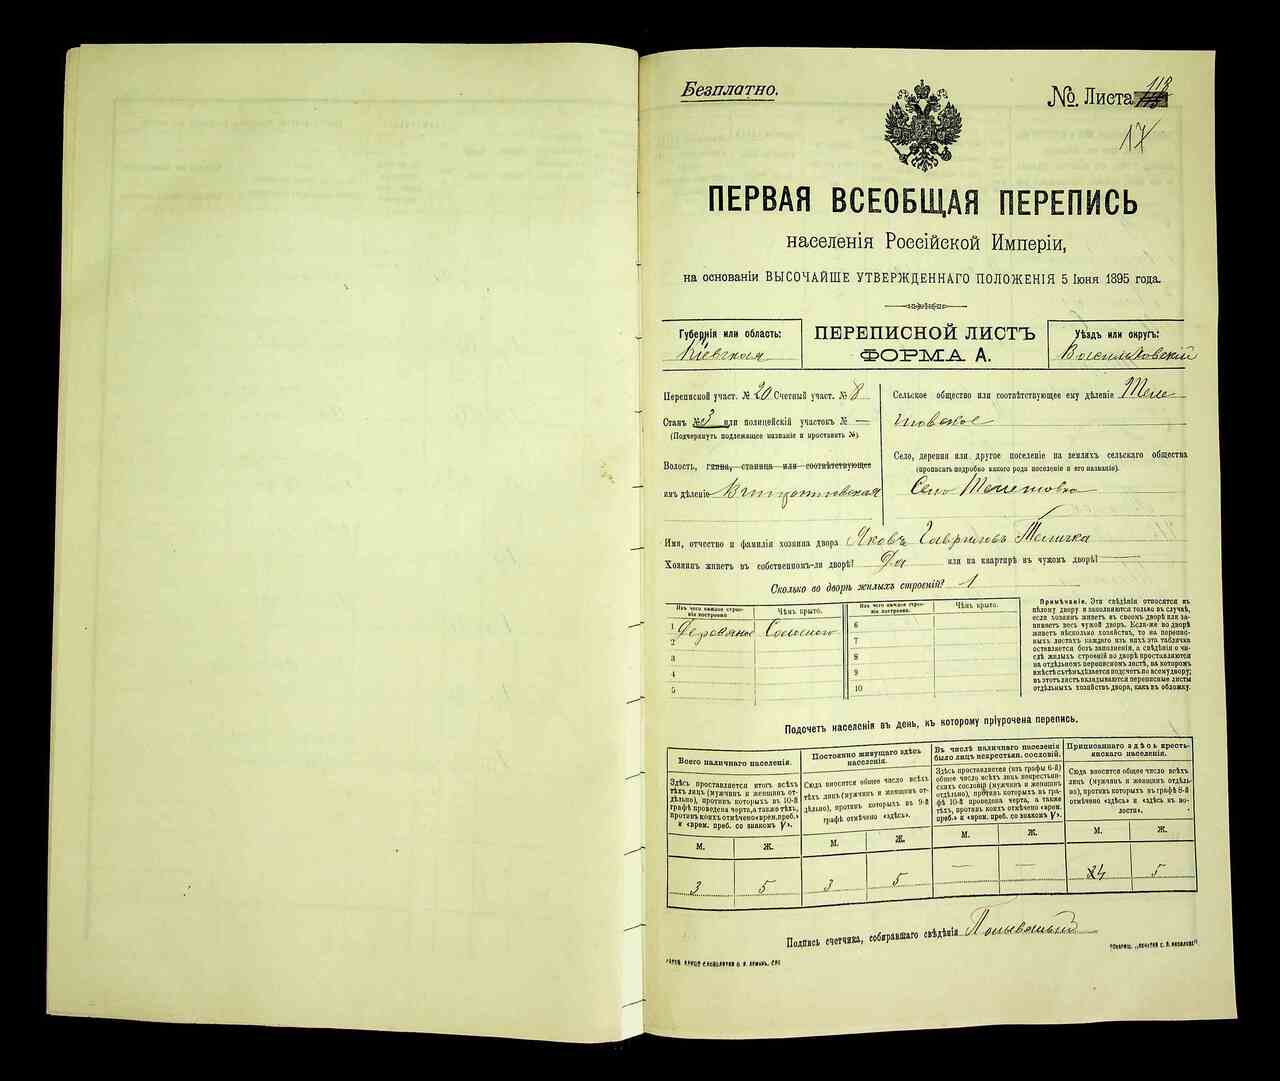 Безплатно.
№ Листа 118
17
ПЕРВАЯ ВСЕОБЩАЯ ПЕРЕПИСЬ
населенія Россійской Имперіи,
на основаніи ВЫСОЧАЙШЕ УТВЕРЖДЕННАГО ПОЛОЖЕНІЯ 5 Іюня 1895 года.
Губернія или область:
Кіевская
ПЕРЕПИСНОЙ ЛИСТЪ
ФОРМА А.
Уѣздъ или округъ:
Васильковскій
Переписной участ. № 20 Счетный участ. № 8
Станъ № 3 или полицейскій участокъ № —
(Подчеркнуть подлежащее названіе и проставить №).
Волость, гмина, станица или соотвѣтствующее
имъ дѣленіе
Сельское общество или соотвѣтствующее ему дѣленіе
Село, деревня или другое поселеніе на земляхъ сельскаго общества
(прописать подробно какого рода поселеніе и его названіе).
Село
Имя, отчество и фамилія хозяина двора Яковъ Гавриловъ
Хозяинъ живетъ въ собственномъ-ли дворѣ? Да или на квартирѣ въ чужомъ дворѣ? —
Сколько во дворѣ жилыхъ строеній? 1
Изъ чего каждое строеніе построено
Чѣмъ крыто.
1 Деревянное Соломою
2
3
4
5
Изъ чего каждое строеніе построено
Чѣмъ крыто.
6
7
8
9
10
Примѣчаніе. Эти свѣдѣнія относятся къ
цѣлому двору и заполняются только въ случаѣ,
если хозяинъ живетъ въ своемъ дворѣ или занимаетъ
весь чужой дворъ. Если-же во дворѣ
живетъ нѣсколько хозяйствъ, то на переписныхъ
листахъ каждаго изъ нихъ эта табличка
оставляется безъ заполненія, а свѣдѣнія о числѣ
жилыхъ строеній во дворѣ проставляются
на отдѣльномъ переписномъ листѣ, на которомъ
вмѣстѣ съ тѣмъ дѣлается подсчетъ по всему двору;
въ этотъ листъ вкладываются переписные листы
отдѣльныхъ хозяйствъ двора, какъ въ обложку.
Подсчетъ населенія въ день, къ которому пріурочена перепись.
Всего наличнаго населенія.
Здѣсь проставляется итогъ всѣхъ
тѣхъ лицъ (мужчинъ и женщинъ отдѣльно),
противъ которыхъ въ 10-й
графѣ проведена черта, а также тѣхъ,
противъ коихъ отмѣчено «врем. преб.»
и «врем. преб. со знакомъ V».
М. Ж.
3 5
Постоянно живущаго здѣсь
населенія.
Сюда вносится общее число всѣхъ
тѣхъ лицъ (мужчинъ и женщинъ отдѣльно),
противъ которыхъ въ 9-й
графѣ отмѣчено «здѣсь».
М. Ж.
3 5
Въ числѣ наличнаго населенія
было лицъ некрестьян. сословій.
Здѣсь проставляется (изъ графы 6-й)
общее число всѣхъ лицъ некрестьянскихъ
сословій (мужчинъ и женщинъ
отдѣльно), противъ которыхъ въ графѣ
10-й проведена черта, а также
тѣхъ, противъ коихъ отмѣчено «врем.
преб.» и «врем. преб. со знакомъ V».
М. Ж.
— —
Приписаннаго здѣсь крестьянскаго
населенія.
Сюда вносится общее число всѣхъ
лицъ (мужчинъ и женщинъ отдѣльно),
противъ которыхъ въ графѣ 8-й
отмѣчено «здѣсь» и «здѣсь въ волости».
М. Ж.
4 5
Подпись счетчика, собиравшаго свѣдѣнія